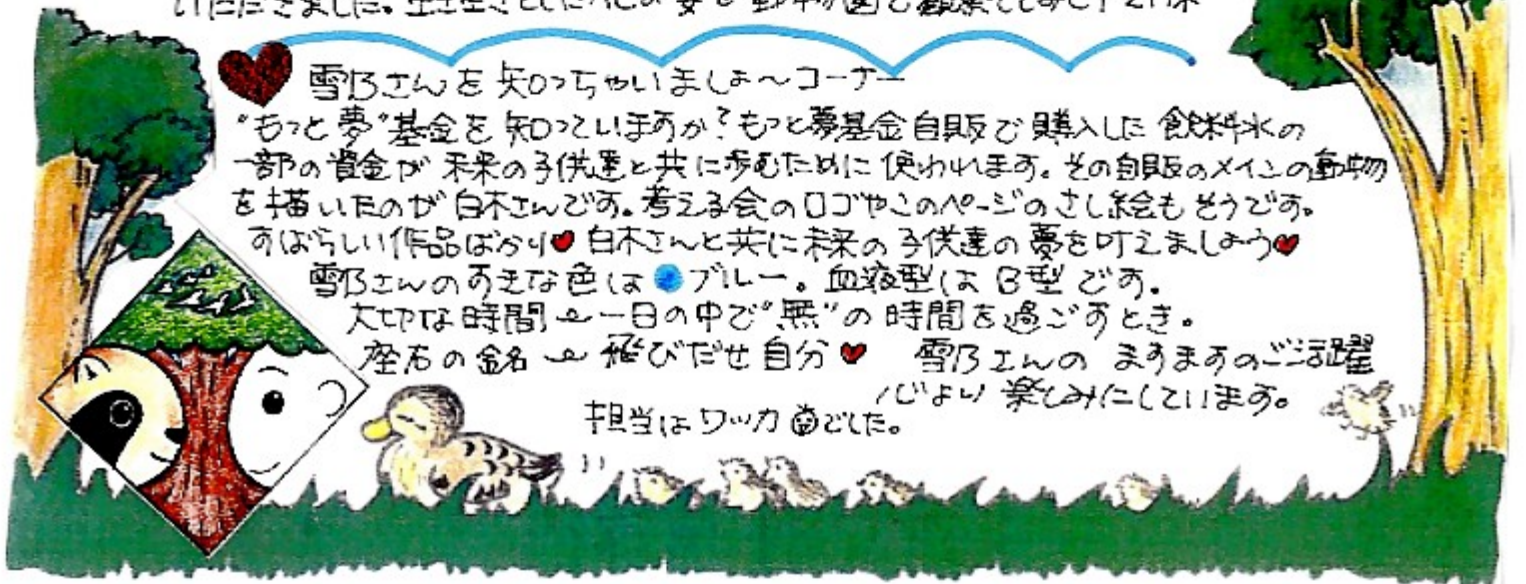 いただきました。生き生きとした
雪乃さんを知っちゃいましょ〜コーナー
“もっと夢”基金を知っていますか？もっと夢基金自販で購入した飲料水の
一部の資金が未来の子供達と共に歩むために使われます。その自販のメインの動物
を描いたのが白木さんです。考える会のロゴやこのページのさし絵もそうです。
すばらしい作品ばかり♥白木さんと共に未来の子供達の夢を叶えましょう♥
雪乃さんのすきな色は●ブルー。血液型はB型です。
大切な時間〜一日の中で“無”の時間を過ごすとき。
座右の銘〜飛びだせ自分♥ 雪乃さんのますますのご活躍
心より楽しみにしています。
担当はワッカでした。